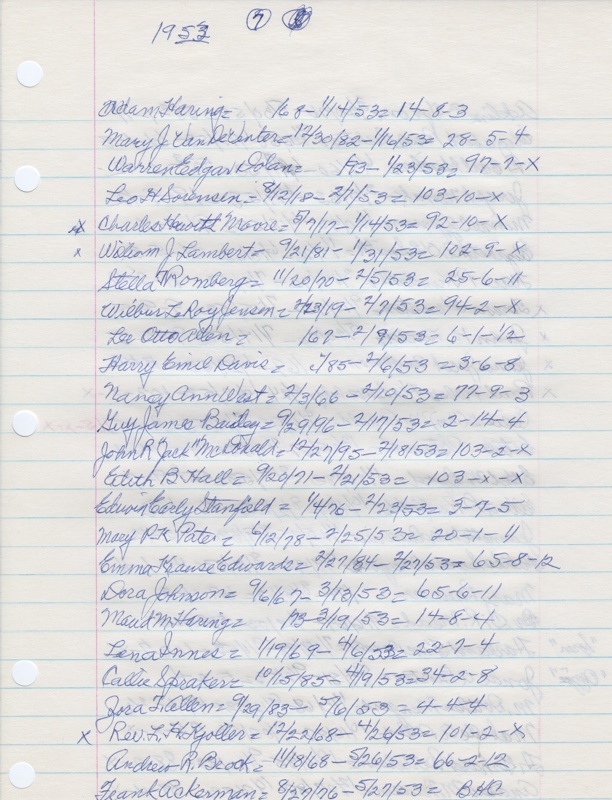 1953 7
Adam Haring = /68 - 1/14/53 = 14-8-3
Mary J. VanDeVenter = 12/30/82 - 1/16/53 = 28-5-4
Warren Edgar Dolan = /73 - 1/23/53 = 97-7-X
Leo H Sorensen = 8/12/18 - 2/1/53 = 103-10-X
X Charles Moore = 5/7/17 - 1/14/53 = 92-10-X
X William J. Lambert = 9/21/81 - 1/31/53 = 102-9-X
Stella Romberg = 11/20/70 - 2/5/53 = 25-6-11
Wilbur LeRoy Jensen = 2/23/19 - 2/7/53 = 94-2-X
Lee Otto Allen = /67 - 2/9/53 = 6-1-1/2
Harry Emil Davis = /85 - 2/6/53 = 3-6-8
Nancy Ann West = 2/3/66 - 2/10/53 = 77-9-3
Guy James Baisley = 9/29/96 - 2/17/53 = 2-14-4
John R "Jack" McDonald = 12/27/95 - 2/18/53 = 103-2-X
Edith B. Hall = 9/20/71 - 2/21/53 = 103-X-X
Edwin Early Stanfield = 1/4/76 - 2/23/53 = 3-7-5
Mary P.K. Pater = 6/12/78 - 2/25/53 = 20-1-4
Emma Krause Edwards = 2/27/84 - 2/27/53 = 65-8-12
Dora Johnson = 9/6/67 - 3/13/53 = 65-6-11
Maud M. Haring = /73 - 3/19/53 = 14-8-4
Lena Innes = 1/19/69 - 4/6/53 = 22-7-4
Callie Spraker = 10/15/85 - 4/9/53 = 34-2-8
Zora F. Allen = 9/29/83 - 5/6/53 = 4-4-4
X Rev. L. H. Kjoller = 12/22/68 - 4/26/53 = 101-2-X
Andrew R. Brock = 11/18/68 - 5/26/53 = 66-2-12
Frank Ackerman = 8/27/76 - 5/27/53 = BHC